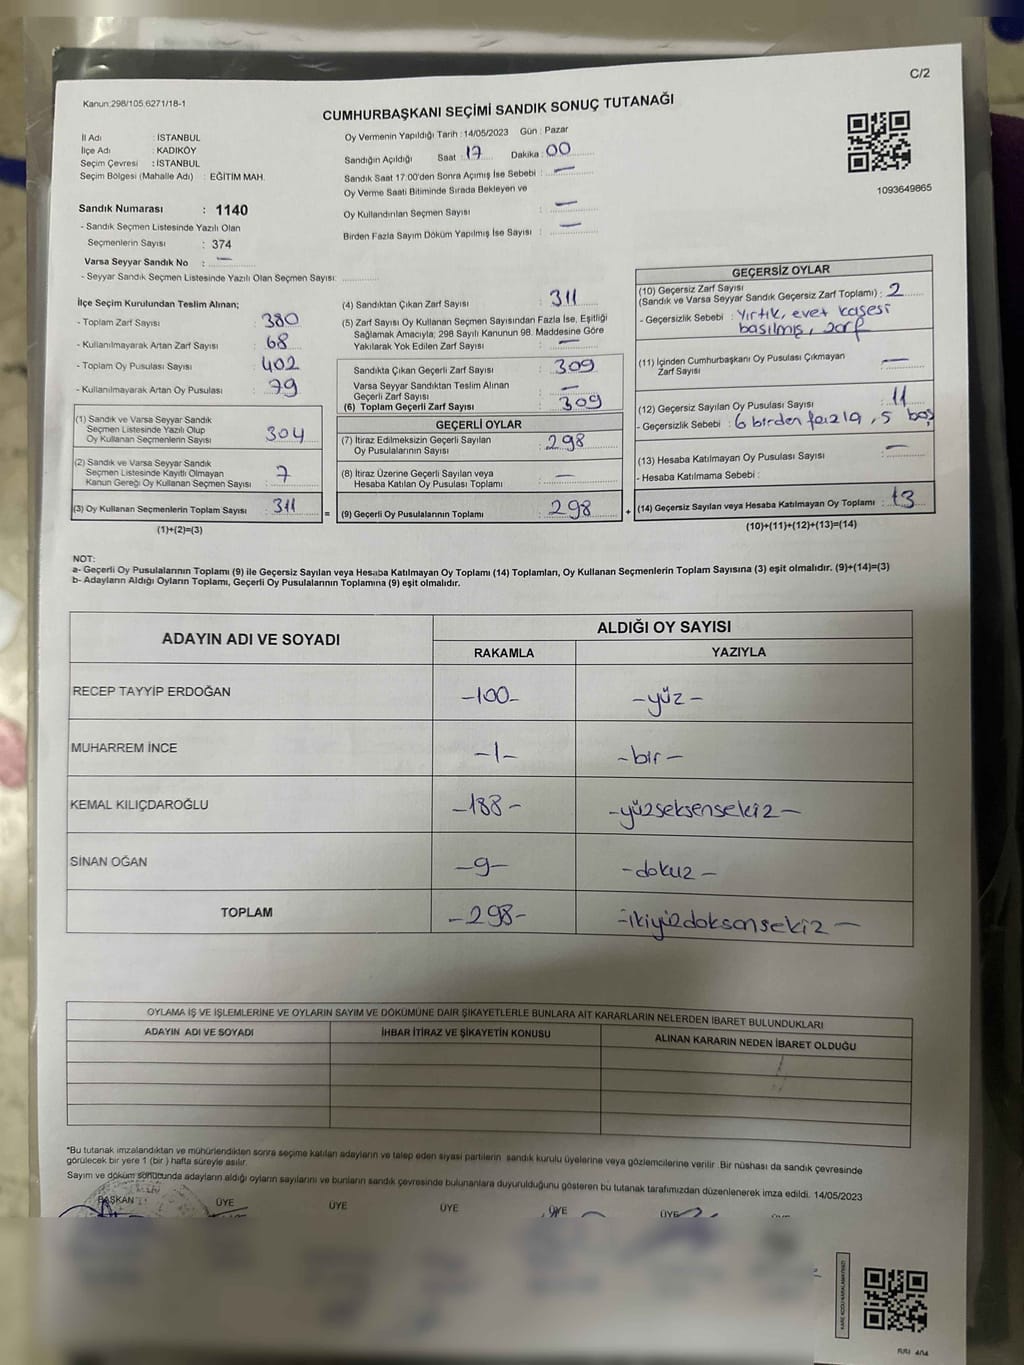 C/2
Kanun:298/105,6271/18-1
CUMHURBAŞKANI SEÇİMİ SANDIK SONUÇ TUTANAĞI
İl Adı : İSTANBUL
İlçe Adı : KADIKÖY
Seçim Çevresi : İSTANBUL
Seçim Bölgesi (Mahalle Adı) : EĞİTİM MAH.
Oy Vermenin Yapıldığı Tarih : 14/05/2023 Gün : Pazar
Sandığın Açıldığı Saat : 17 Dakika : 00
Sandık Saat 17:00'den Sonra Açımış İse Sebebi : —
Oy Verme Saati Bitiminde Sırada Bekleyen ve
Oy Kullandırılan Seçmen Sayısı : —
Birden Fazla Sayım Döküm Yapılmış İse Sayısı : —
1093649865
Sandık Numarası : 1140
- Sandık Seçmen Listesinde Yazılı Olan
Seçmenlerin Sayısı : 374
Varsa Seyyar Sandık No : —
- Seyyar Sandık Seçmen Listesinde Yazılı Olan Seçmen Sayısı:
İlçe Seçim Kurulundan Teslim Alınan;
- Toplam Zarf Sayısı : 380
- Kullanılmayarak Artan Zarf Sayısı : 68
- Toplam Oy Pusulası Sayısı : 402
- Kullanılmayarak Artan Oy Pusulası : 79
(1) Sandık ve Varsa Seyyar Sandık
Seçmen Listesinde Yazılı Olup
Oy Kullanan Seçmenlerin Sayısı : 304
(2) Sandık ve Varsa Seyyar Sandık
Seçmen Listesinde Kayıtlı Olmayan
Kanun Gereği Oy Kullanan Seçmen Sayısı : 7
(3) Oy Kullanan Seçmenlerin Toplam Sayısı : 311
(1)+(2)=(3)
(4) Sandıktan Çıkan Zarf Sayısı : 311
(5) Zarf Sayısı Oy Kullanan Seçmen Sayısından Fazla İse, Eşitliği
Sağlamak Amacıyla; 298 Sayılı Kanunun 98. Maddesine Göre
Yakılarak Yok Edilen Zarf Sayısı : —
Sandıkta Çıkan Geçerli Zarf Sayısı : 309
Varsa Seyyar Sandıktan Teslim Alınan
Geçerli Zarf Sayısı : —
(6) Toplam Geçerli Zarf Sayısı : 309
GEÇERLİ OYLAR
(7) İtiraz Edilmeksizin Geçerli Sayılan
Oy Pusulalarının Sayısı : 298
(8) İtiraz Üzerine Geçerli Sayılan veya
Hesaba Katılan Oy Pusulası Toplamı : —
= (9) Geçerli Oy Pusulalarının Toplamı : 298 +
GEÇERSİZ OYLAR
(10) Geçersiz Zarf Sayısı
(Sandık ve Varsa Seyyar Sandık Geçersiz Zarf Toplamı) : 2
- Geçersizlik Sebebi : Yırtık, evet kaşesi
basılmış, zarf
(11) İçinden Cumhurbaşkanı Oy Pusulası Çıkmayan
Zarf Sayısı : —
(12) Geçersiz Sayılan Oy Pusulası Sayısı : 11
- Geçersizlik Sebebi : 6 birden fazla, 5 boş
(13) Hesaba Katılmayan Oy Pusulası Sayısı : —
- Hesaba Katılmama Sebebi :
(14) Geçersiz Sayılan veya Hesaba Katılmayan Oy Toplamı : 13
(10)+(11)+(12)+(13)=(14)
NOT:
a- Geçerli Oy Pusulalarının Toplamı (9) ile Geçersiz Sayılan veya Hesaba Katılmayan Oy Toplamı (14) Toplamları, Oy Kullanan Seçmenlerin Toplam Sayısına (3) eşit olmalıdır. (9)+(14)=(3)
b- Adayların Aldığı Oyların Toplamı, Geçerli Oy Pusulalarının Toplamına (9) eşit olmalıdır.
ADAYIN ADI VE SOYADI ALDIĞI OY SAYISI
RAKAMLA YAZIYLA
RECEP TAYYİP ERDOĞAN -100- -yüz-
MUHARREM İNCE -1- -bir-
KEMAL KILIÇDAROĞLU -188- -yüzseksensekiz-
SİNAN OĞAN -9- -dokuz-
TOPLAM -298- -ikiyüzdoksansekiz-
OYLAMA İŞ VE İŞLEMLERİNE VE OYLARIN SAYIM VE DÖKÜMÜNE DAİR ŞİKAYETLERLE BUNLARA AİT KARARLARIN NELERDEN İBARET BULUNDUKLARI
ADAYIN ADI VE SOYADI İHBAR İTİRAZ VE ŞİKAYETİN KONUSU ALINAN KARARIN NEDEN İBARET OLDUĞU
*Bu tutanak imzalandıktan ve mühürlendikten sonra seçime katılan adayların ve talep eden siyasi partilerin sandık kurulu üyelerine veya gözlemcilerine verilir. Bir nüshası da sandık çevresinde
görülecek bir yere 1 (bir ) hafta süreyle asılır.
Sayım ve döküm sonucunda adayların aldığı oyların sayılarını ve bunların sandık çevresinde bulunanlara duyurulduğunu gösteren bu tutanak tarafımızdan düzenlenerek imza edildi. 14/05/2023
BAŞKAN ÜYE ÜYE ÜYE ÜYE ÜYE